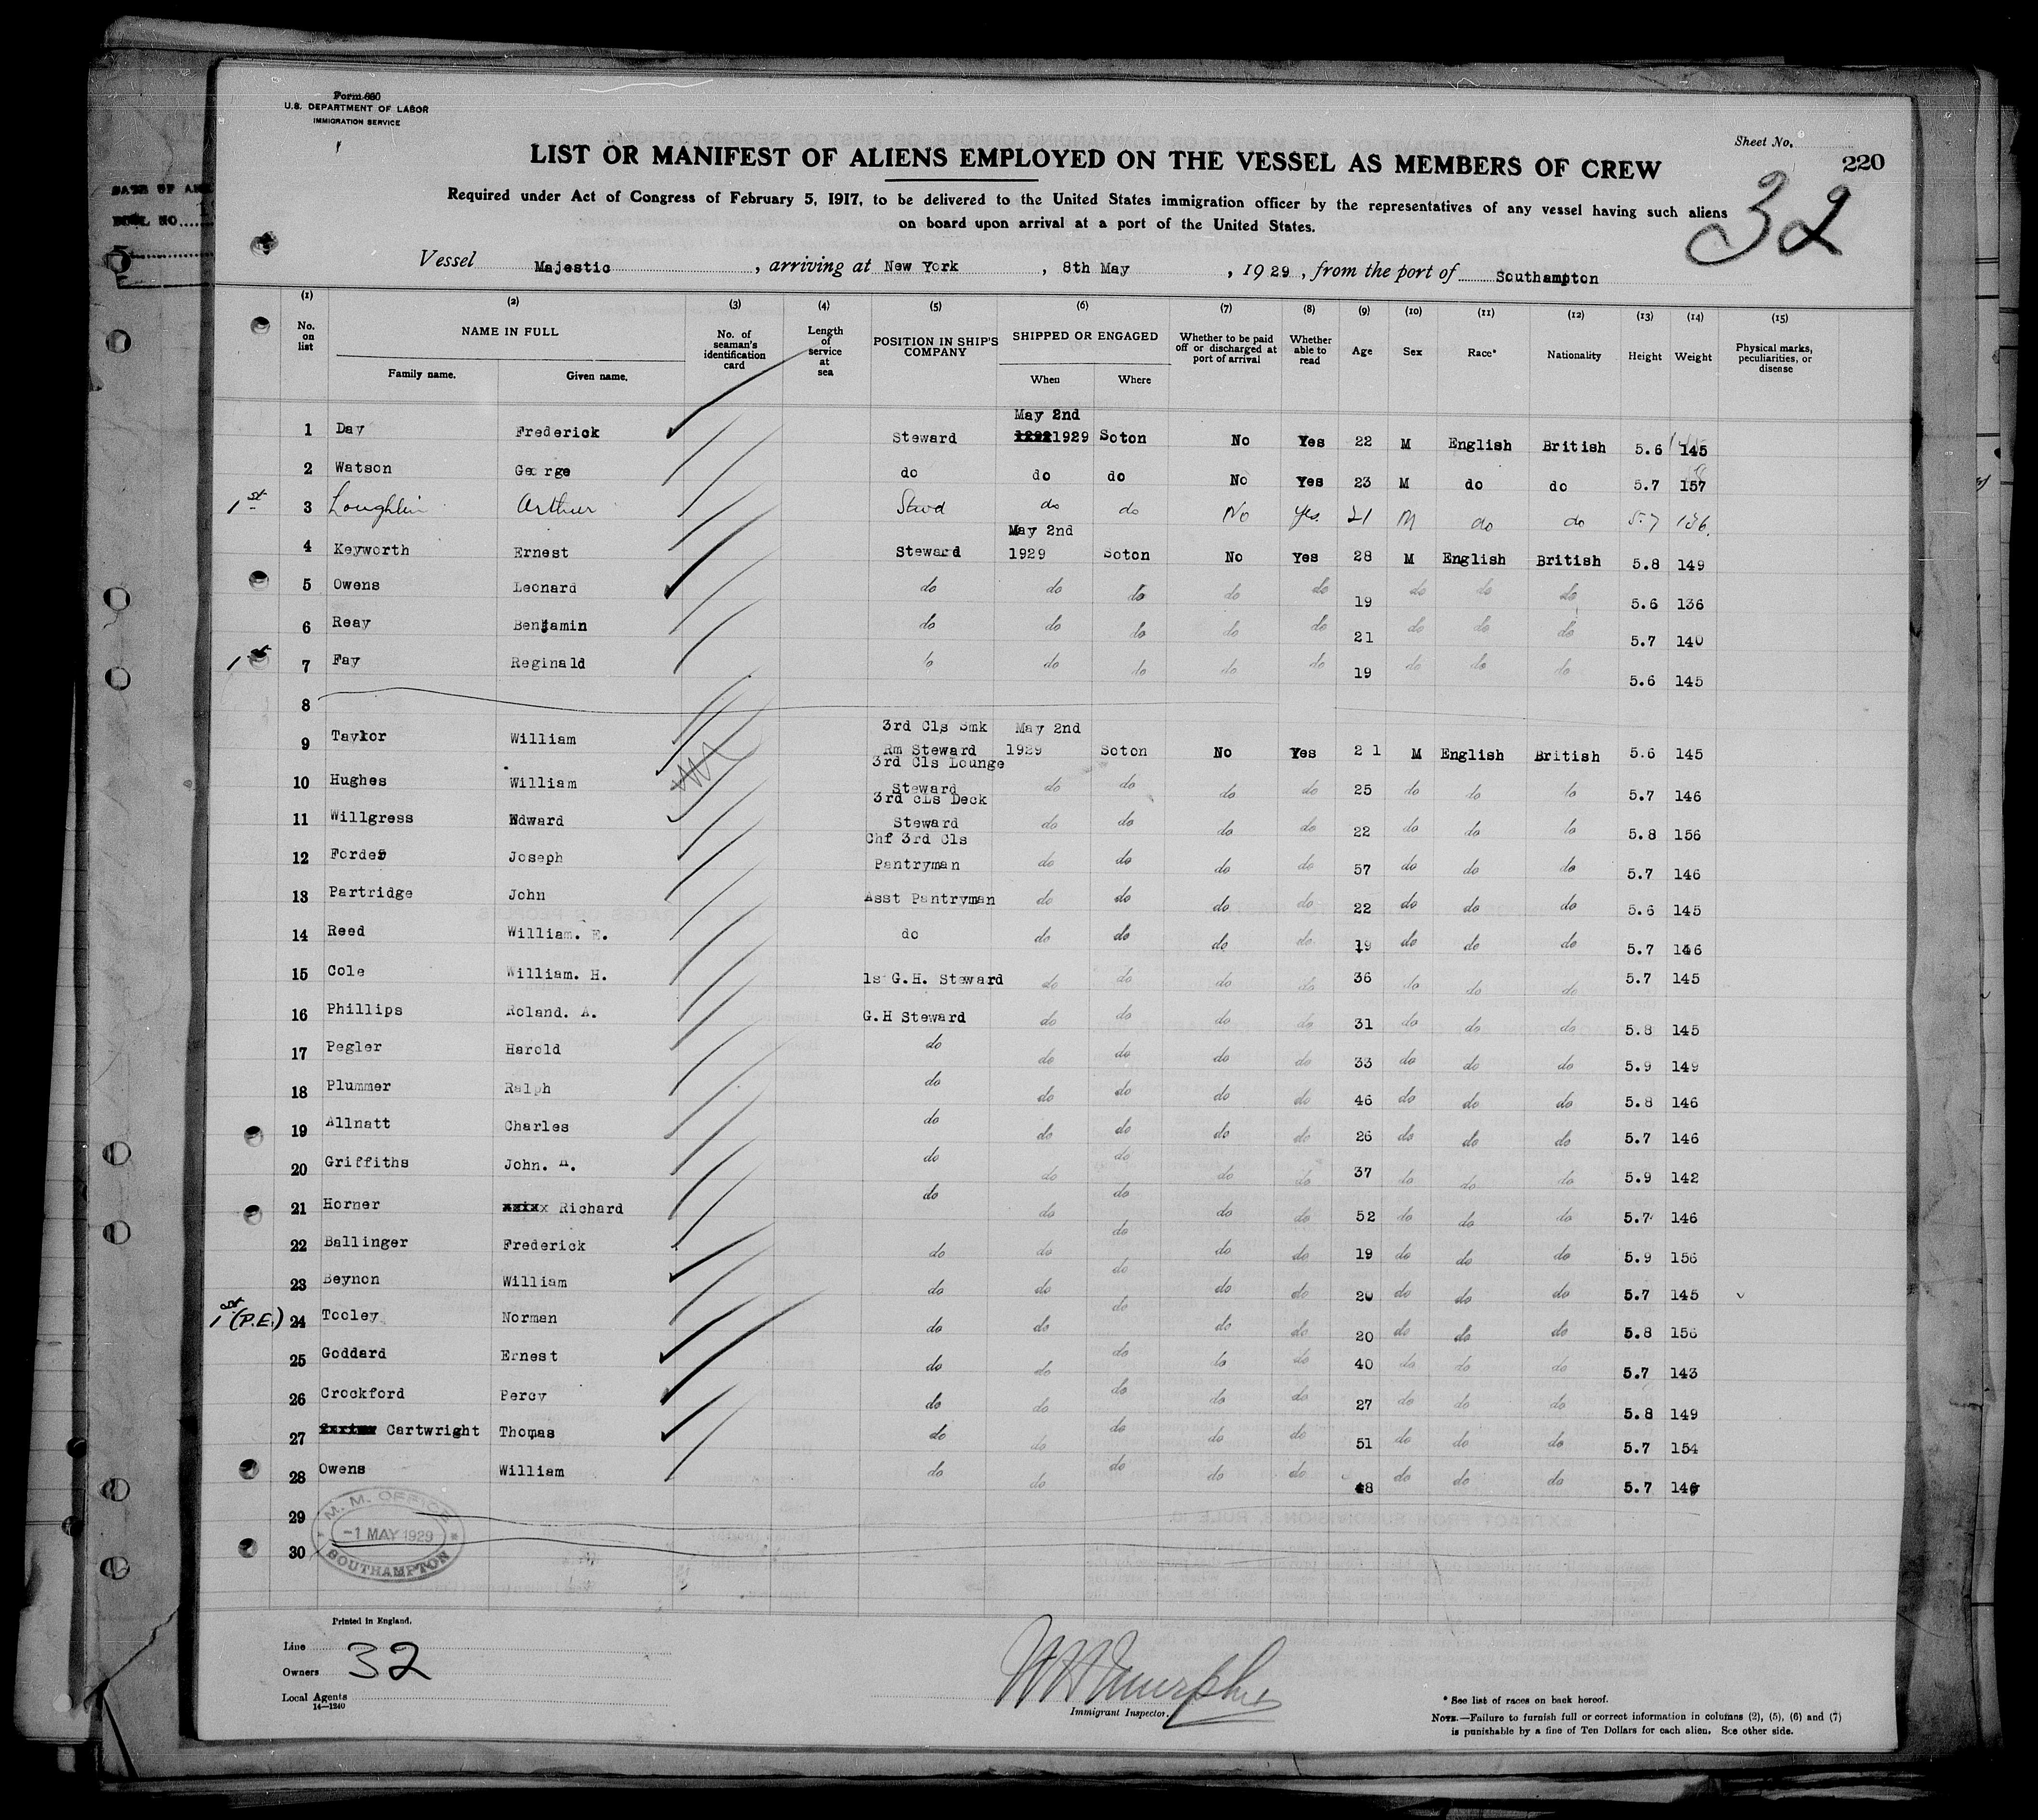 Form 680
U.S. DEPARTMENT OF LABOR
IMMIGRATION SERVICE
Sheet No.
220
32
LIST OR MANIFEST OF ALIENS EMPLOYED ON THE VESSEL AS MEMBERS OF CREW
Required under Act of Congress of February 5, 1917, to be delivered to the United States immigration officer by the representatives of any vessel having such aliens
on board upon arrival at a port of the United States.
Vessel Majestic, arriving at New York, 8th May, 1929, from the port of Southampton
(1) (2) (3) (4) (5) (6) (7) (8) (9) (10) (11) (12) (13) (14) (15)
No. on list NAME IN FULL Family name. Given name. No. of seaman's identification card Length of service at sea POSITION IN SHIP'S COMPANY SHIPPED OR ENGAGED When Where Whether to be paid off or discharged at port of arrival Whether able to read Age Sex Race* Nationality Height Weight Physical marks, peculiarities, or disease
1 Day Frederick Steward May 2nd 1929 Soton No Yes 22 M English British 5.6 145
2 Watson George do do do No Yes 23 M do do 5.7 157
1st 3 Loughlin Arthur Stwd do do No Yes 21 M do do 5.7 136
4 Keyworth Ernest Steward May 2nd 1929 Soton No Yes 28 M English British 5.8 149
5 Owens Leonard do do do do do 19 do do do 5.6 136
6 Reay Benjamin do do do do do 21 do do do 5.7 140
1st 7 Fay Reginald do do do do 19 do do do 5.6 145
8
9 Taylor William 3rd Cls Smk Rm Steward May 2nd 1929 Soton No Yes 21 M English British 5.6 145
10 Hughes William 3rd Cls Lounge Steward do do do do 25 do do do 5.7 146
11 Willgress Edward 3rd cLs Deck Steward do do do do 22 do do do 5.8 156
12 Forder Joseph Chf 3rd Cls Pantryman do do do do 57 do do do 5.7 146
13 Partridge John Asst Pantryman do do do do 22 do do do 5.6 145
14 Reed William. E. do do do do do 19 do do do 5.7 146
15 Cole William. H. 1s G.H. Steward do do do do 36 do do do 5.7 145
16 Phillips Roland. A. G.H Steward do do do do 31 do do do 5.8 145
17 Pegler Harold do do do do do 33 do do do 5.9 149
18 Plummer Ralph do do do do do 46 do do do 5.8 146
19 Allnatt Charles do do do do do 26 do do do 5.7 146
20 Griffiths John. do do do do do 37 do do do 5.9 142
21 Horner Richard do do do do do 52 do do do 5.7 146
22 Ballinger Frederick do do do do do 19 do do do 5.9 156
23 Beynon William do do do do do 20 do do do 5.7 145
1st (P.E.) 24 Tooley Norman do do do do do 20 do do do 5.8 156
25 Goddard Ernest do do do do do 40 do do do 5.7 143
26 Crockford Percy do do do do do 27 do do do 5.8 149
27 Cartwright Thomas do do do do do 51 do do do 5.7 154
28 Owens William do do do do do 48 do do do 5.7
29
30
M. M. OFFICE
-1 MAY 1929
SOUTHAMPTON
Printed in England.
Line
Owners 32
Local Agents
14—1240
Immigrant Inspector.
* See list of races on back hereof.
NOTE.—Failure to furnish full or correct information in columns (2), (5), (6) and (7)
is punishable by a fine of Ten Dollars for each alien. See other side.